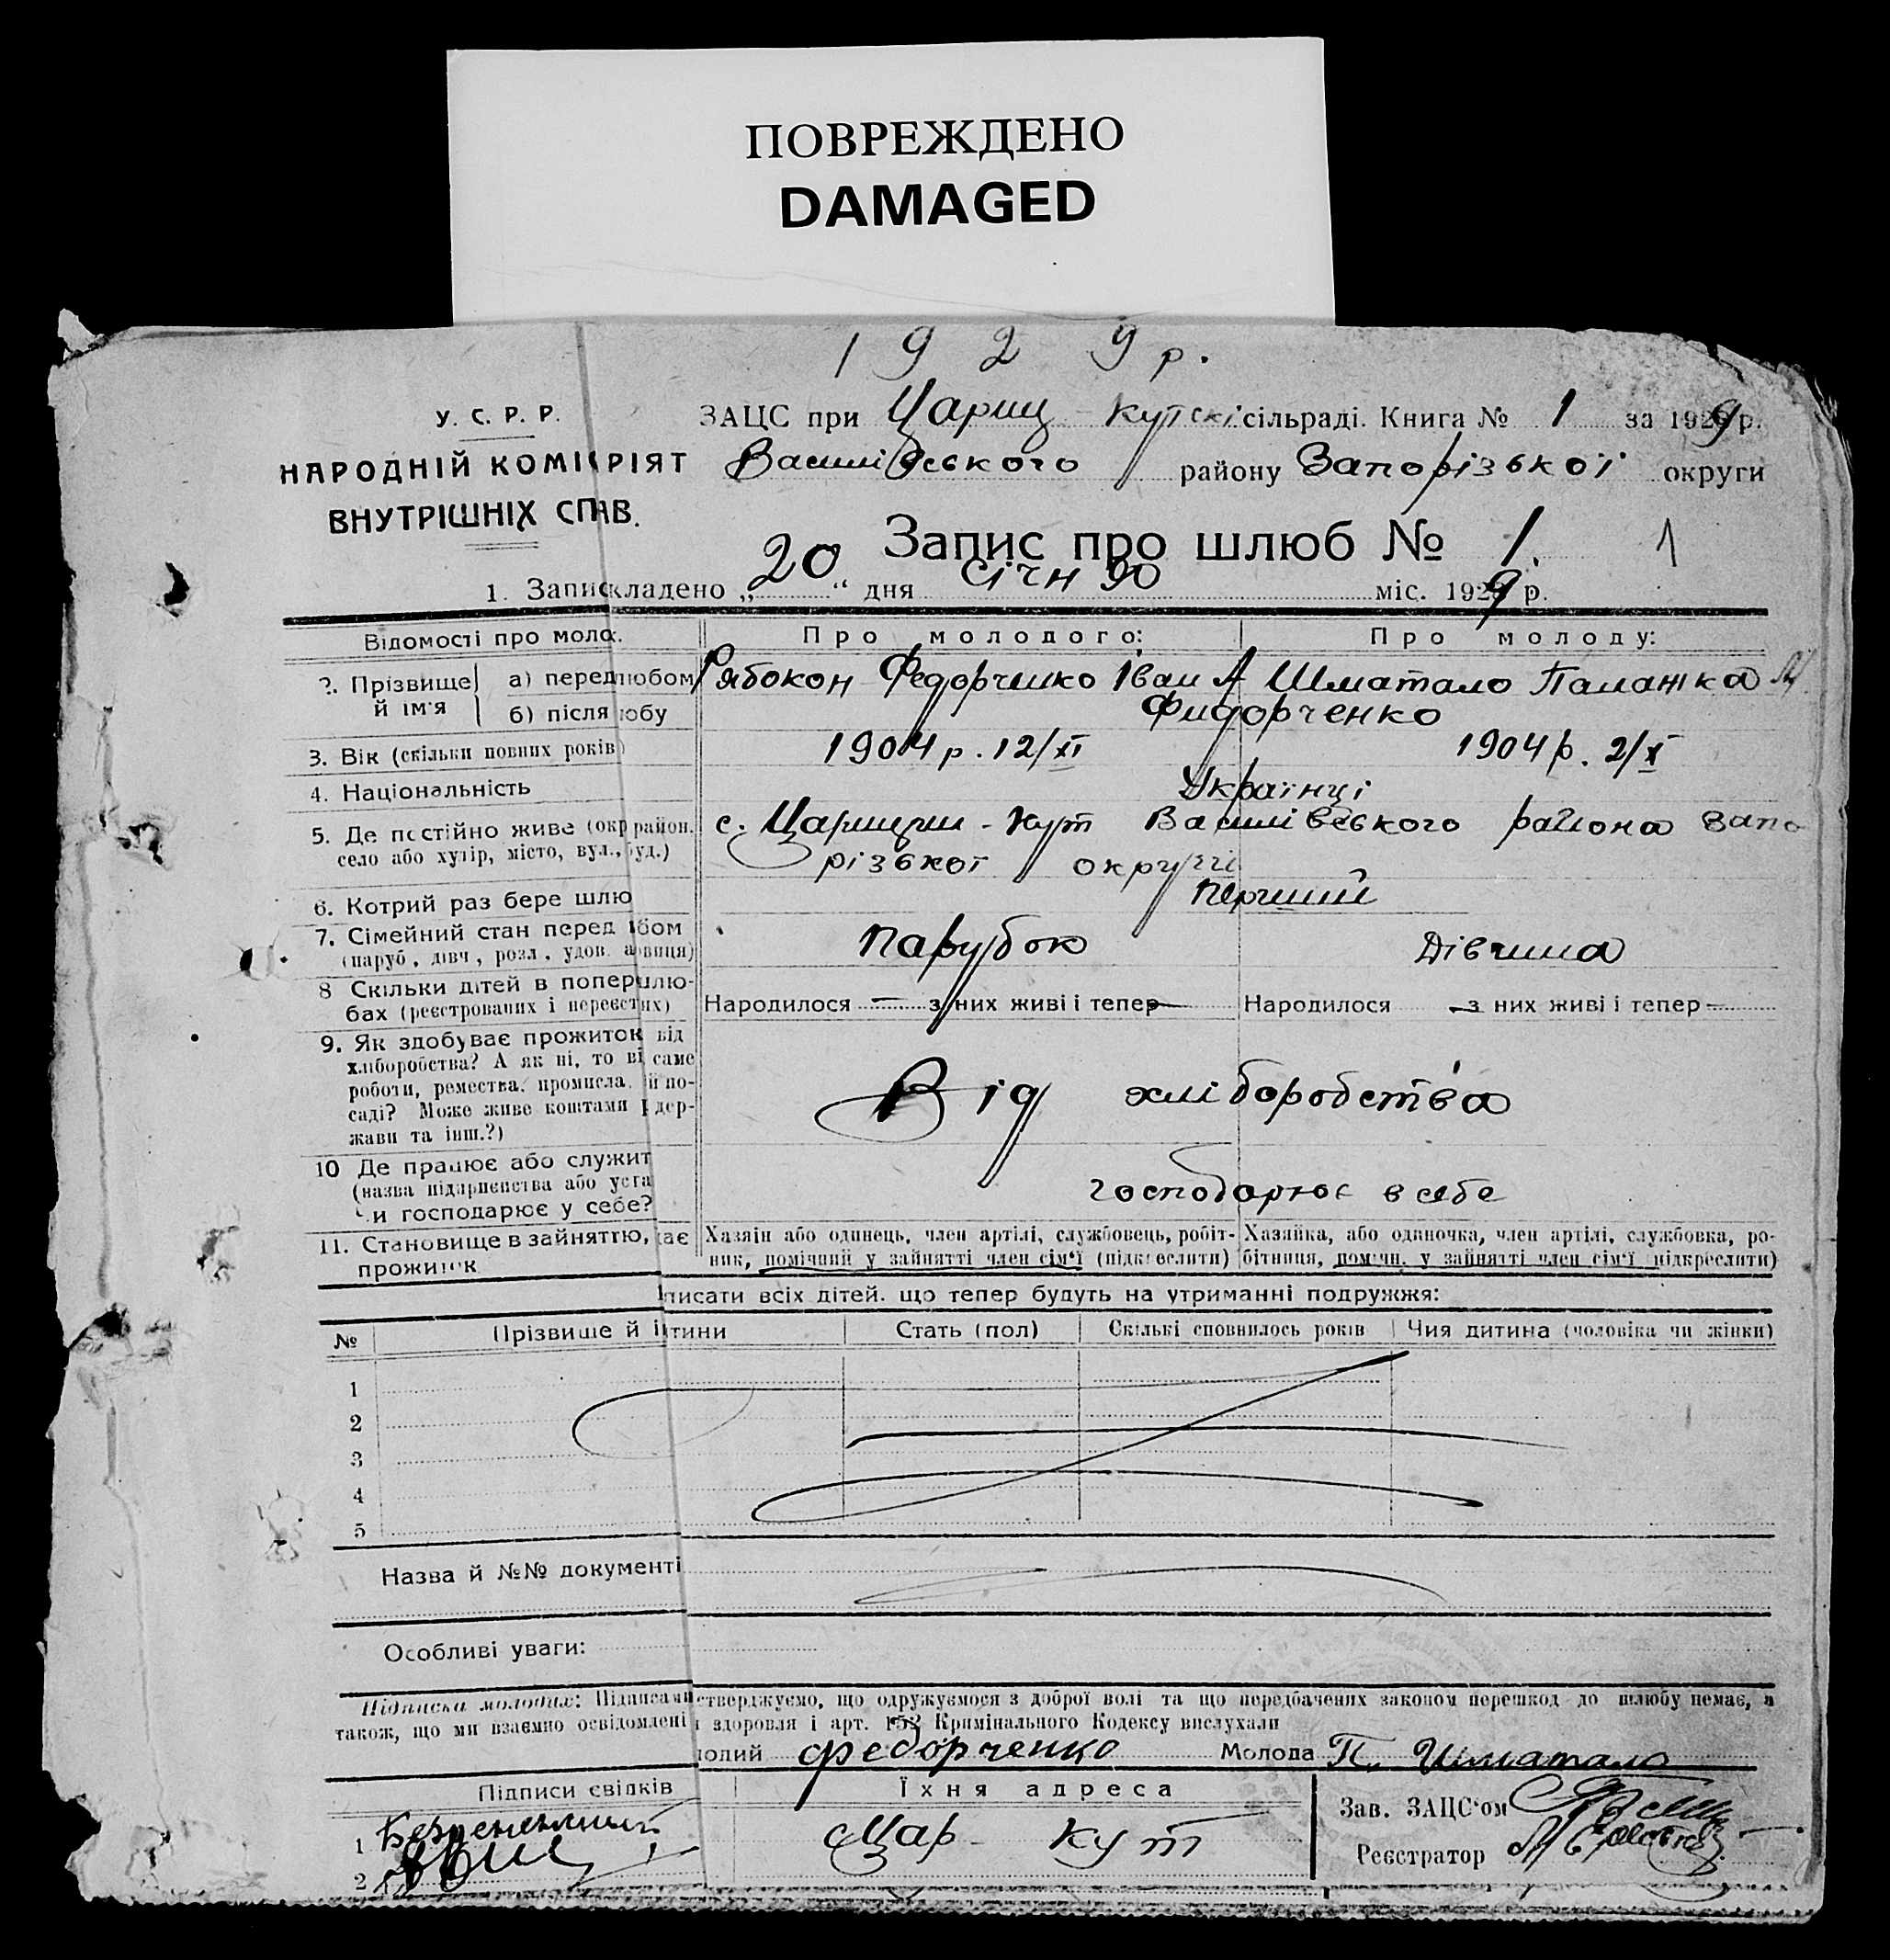 ПОВРЕЖДЕНО
DAMAGED
1929 р.
У. С. Р. Р.
НАРОДНІЙ КОМІ РІЯТ
ВНУТРІШНІХ СП АВ.
ЗАЦС при Цариц - Кутскі сільраді. Книга № 1 за 1929 р.
Василівського району Запорізької округи
Запис про шлюб № 1. 1
1. Запис кладено „20“ дня січня міс. 1929 р.
Відомості про моло : Про молодого: Про молоду:
2. Прізвище й ім'я а) перед любом Рябокон Федорченко Іван А Шматало Паланжка
б) після юбу Фидорченко
3. Вік (скільки повних років) 1904 р. 12/XI 1904 р. 2/X
4. Національність Українці
5. Де постійно живе (окр район. с. Царицин - Кут Василівського района Запо
село або хутір, місто, вул., буд.) різької округи
6. Котрий раз бере шлю перший
7. Сімейний стан перед юбом Парубок Дівчина
(паруб, дівч, розл, удов. а овиця)
8 Скільки дітей в попер шлю-
бах (реєстрованих і нереєст их) Народилося — з них живі і тепер — Народилося — з них живі і тепер —
9. Як здобуває прожиток від
хліборобства? А як ні, то ві саме
роботи, ремества, промисла, її по-
саді? Може живе коштами дер-
жави та інш.?)
Від хліборобства
10 Де працює або служит
(назва підприємства або уста
чи господарює у себе?
господарює в себе
11. Становище в зайняттю, дає
прожиток
Хазяїн або одинець, член артілі, службовець, робіт-
ник, помічний у зайнятті член сім'ї (підкреслити)
Хазяйка, або одиночка, член артілі, службовка, ро-
бітниця, помічн. у зайнятті член сім'ї підкреслити)
писати всіх дітей, що тепер будуть на утриманні подружжя:
№ Прізвище й тини Стать (пол) Скількі сповнилось років Чия дитина (чоловіка чи жінки)
1
2
3
4
5
Назва й №№ документі
Особливі уваги:
Підписка молодих: Підписами стверджуємо, що одружуємося з доброї волі та що передбачених законом перешкод до шлюбу немає, а
також, що ми взаємно освідомлені здоровля і арт. 152 Кримінального Кодексу вислухали
одий Федорченко Молода П. Шматало
Підписи свідків Їхня адреса
Зав. ЗАЦС'ом
1 Цар - Кут
Реєстратор
2